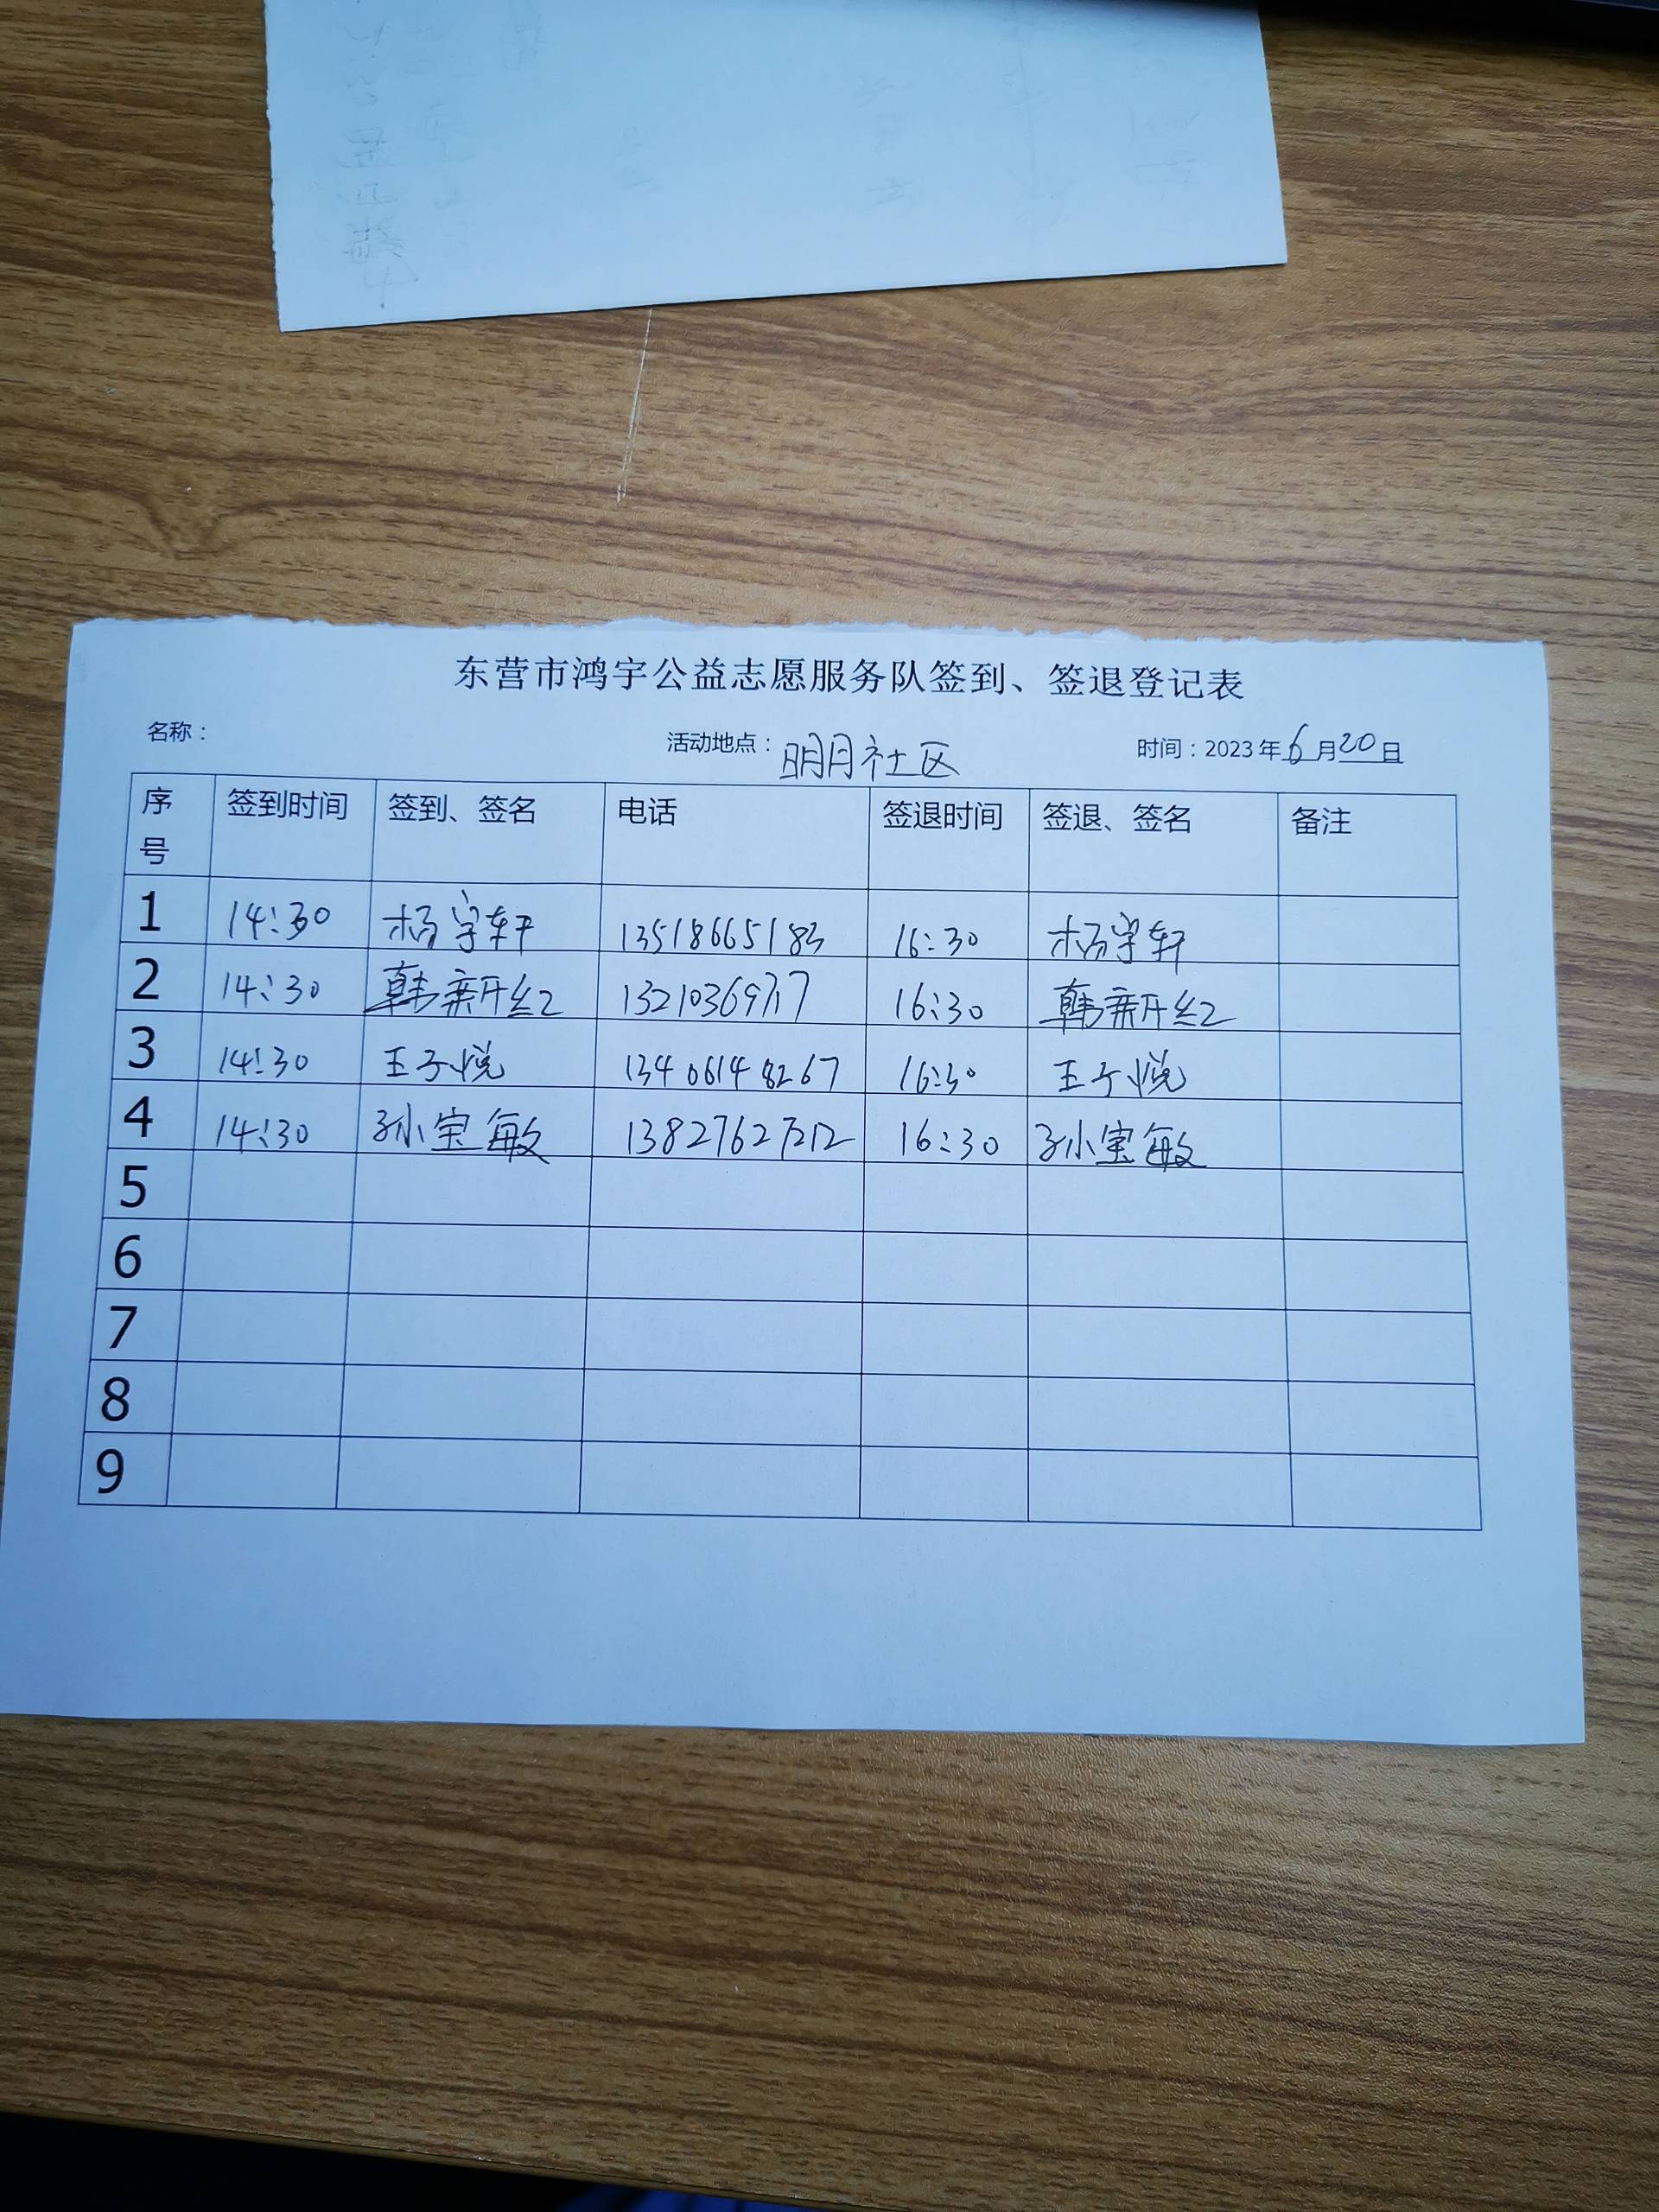 东营市鸿宇公益志愿服务队签到、签退登记表
名称： 活动地点：明月社区 时间：2023年6月20日
序号 签到时间 签到、签名 电话 签退时间 签退、签名 备注
1 14:30 杨宇轩 13518665183 16:30 杨宇轩
2 14:30 韩新红 16:30 韩新红
3 14:30 王子悦 13406148267 16:30 王子悦
4 14:30 孙宝敏 13827627212 16:30 孙宝敏
5
6
7
8
9